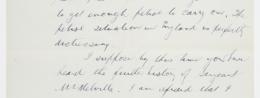 to get enough petrol to carry out. The
petrol situation in England is perfectly
distressing.
I suppose by this time you have
heard the family history of Sergeant
McMelville. I am afraid that I